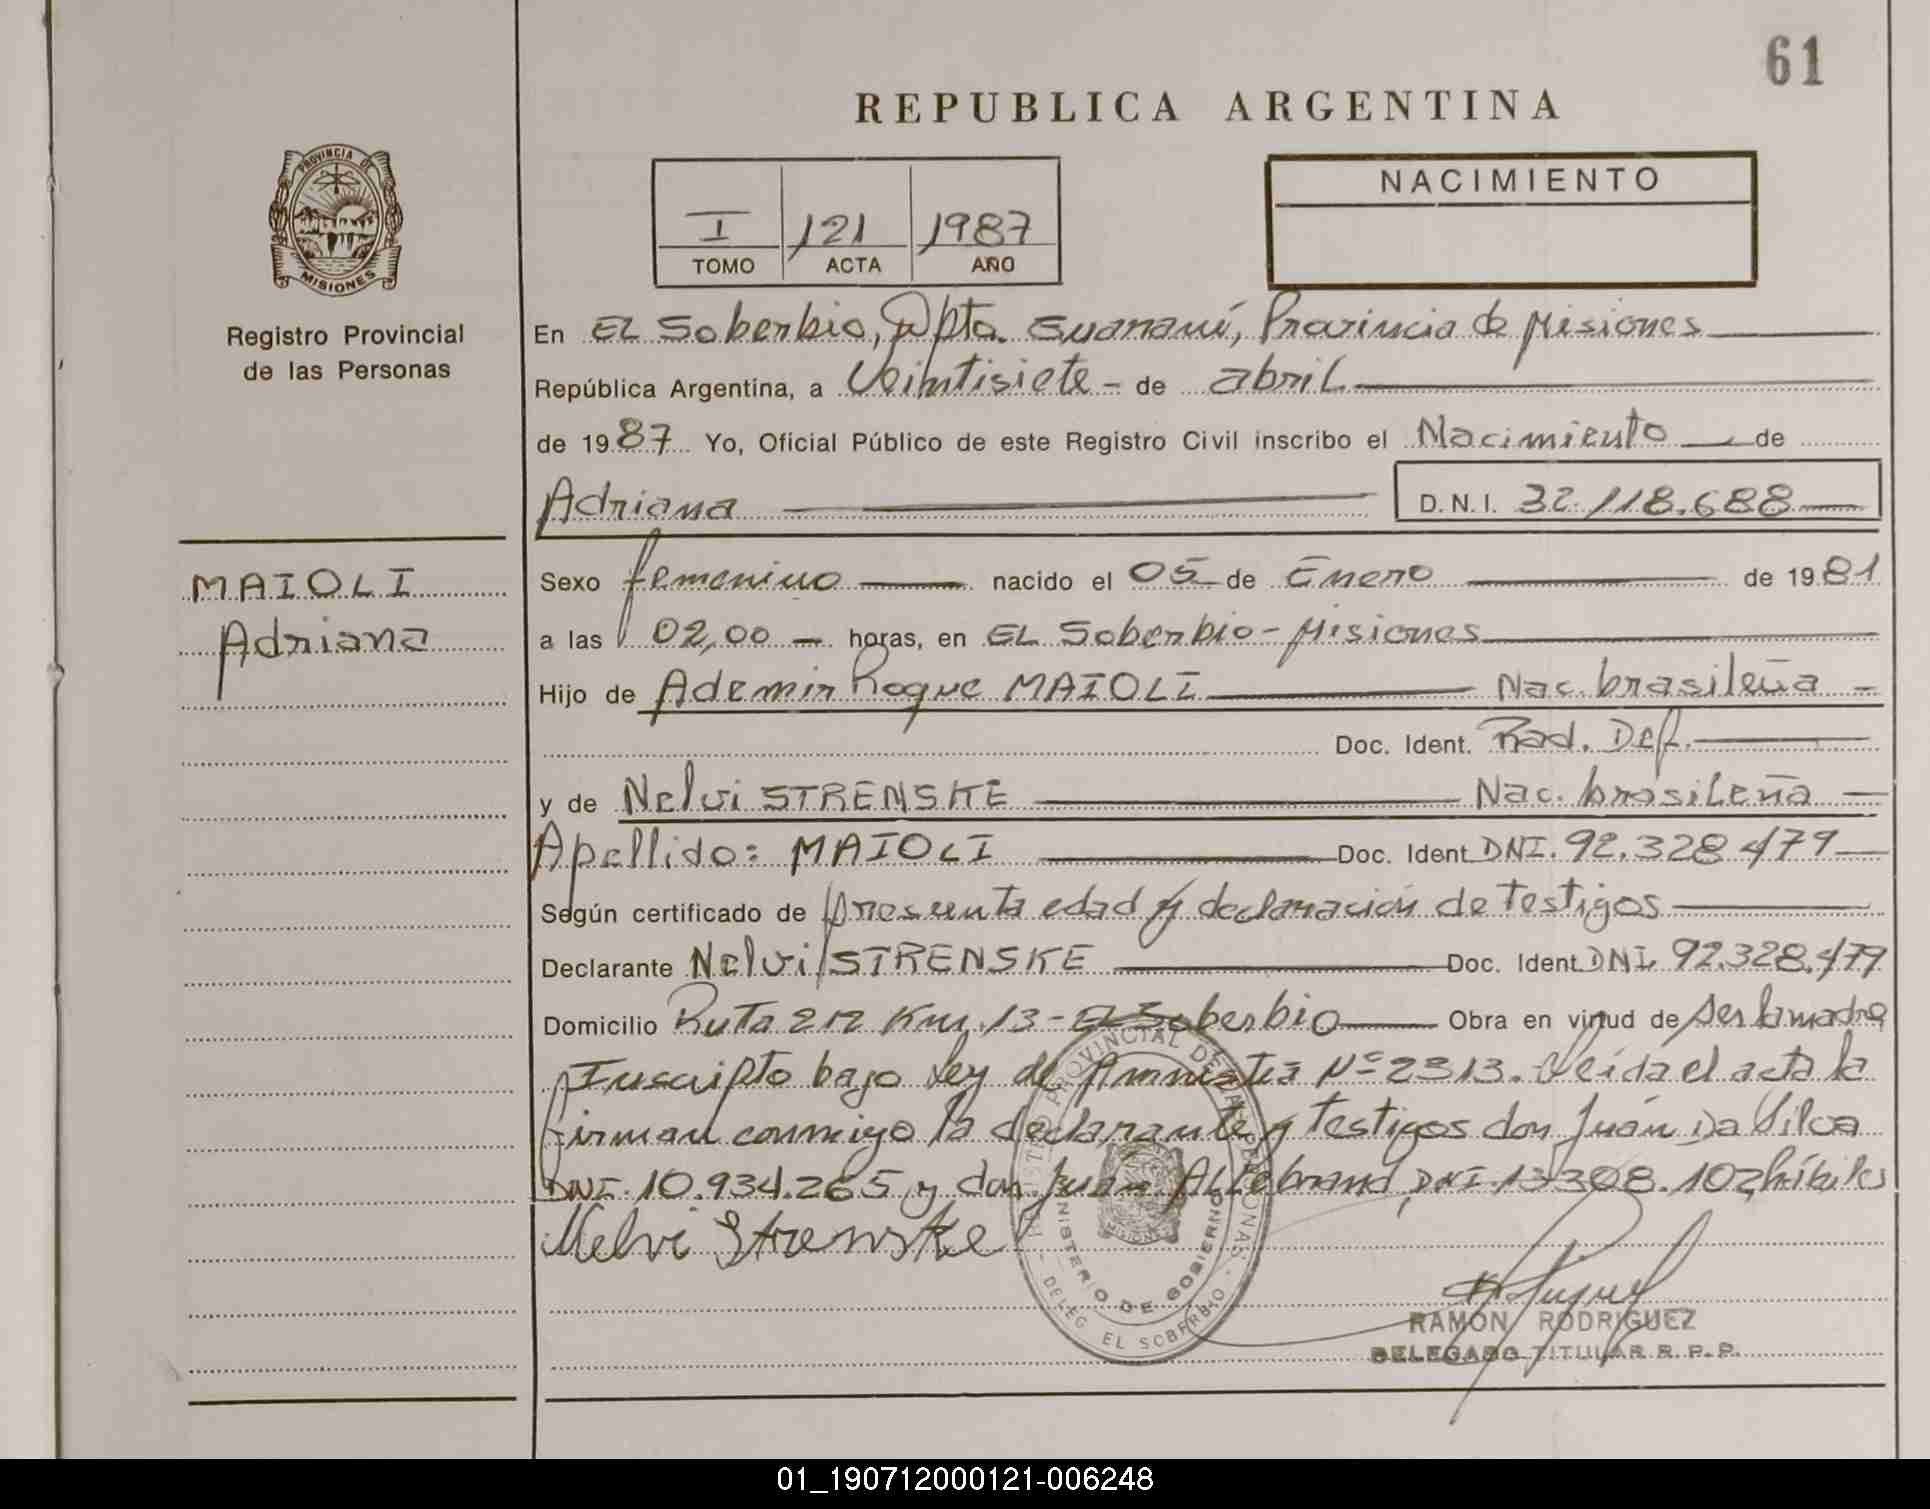 61
REPUBLICA ARGENTINA
PROVINCIA DE
MISIONES
Registro Provincial
de las Personas
I 121 1987
TOMO ACTA AÑO
NACIMIENTO
En EL Soberbio, Dpto. Guaraní, Provincia de Misiones
República Argentina, a Veintisiete - de abril
de 1987 Yo, Oficial Público de este Registro Civil inscribo el Nacimiento de
Adriana D.N.I. 32.118.688
MAIOLI
Adriana
Sexo femenino nacido el 05 de Enero de 1981
a las 02,00 horas, en EL Soberbio - Misiones
Hijo de Ademir Roque MAIOLI Nac. brasileña
Doc. Ident. Rad. Def.
y de Nelvi STRENSKE Nac. brasileña
Apellido: MAIOLI Doc. Ident. DNI. 92.328.479
Según certificado de presunta edad y declaración de testigos
Declarante Nelvi STRENSKE Doc. Ident. DNI. 92.328.479
Domicilio Ruta 212 Km. 13 - EL Soberbio Obra en virtud de ser la madre
Inscripto bajo Ley de Amnistia Nº 2313. Leida el acta la
firman conmigo la declarante y testigos don Juán Da Silva
DNI. 10.934.265 y don Juán DNI. 13.308.102 hábiles
Nelvi Strenske
REGISTRO PROVINCIAL DE LAS PERSONAS
MINISTERIO DE GOBIERNO
MISIONES
DELEG. EL SOBERBIO
RAMON RODRIGUEZ
DELEGADO TITULAR R.P.P.
01_190712000121-006248